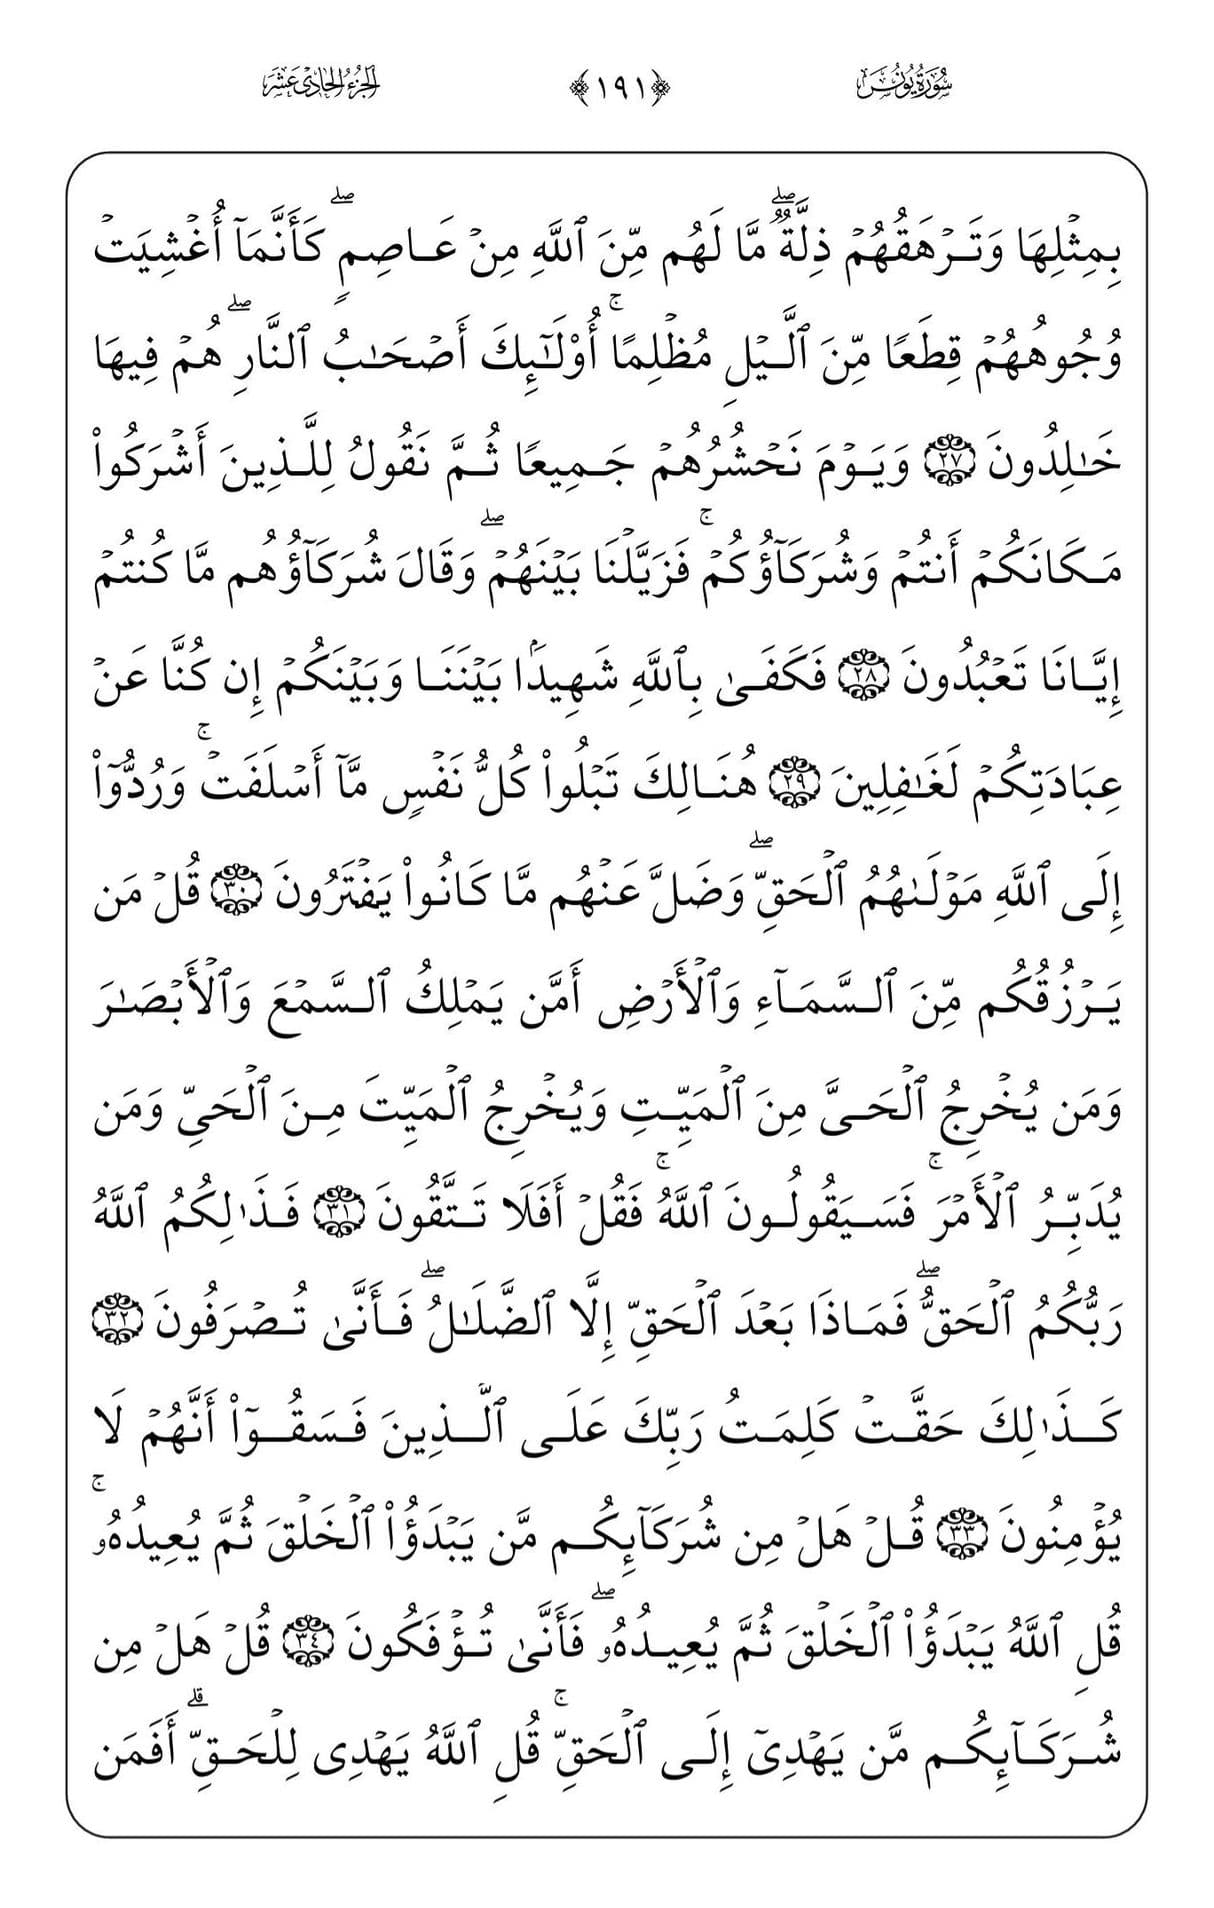 سُورَةُ يُونُسَ ﴿١٩١﴾ الجُزْءُ الحَادِي عَشَرَ
بِمِثۡلِهَا وَتَرۡهَقُهُمۡ ذِلَّةٞۖ مَّا لَهُم مِّنَ ٱللَّهِ مِنۡ عَاصِمٖۖ كَأَنَّمَآ أُغۡشِيَتۡ
وُجُوهُهُمۡ قِطَعٗا مِّنَ ٱلَّيۡلِ مُظۡلِمًاۚ أُوْلَٰٓئِكَ أَصۡحَٰبُ ٱلنَّارِۖ هُمۡ فِيهَا
خَٰلِدُونَ ٢٧ وَيَوۡمَ نَحۡشُرُهُمۡ جَمِيعٗا ثُمَّ نَقُولُ لِلَّذِينَ أَشۡرَكُواْ
مَكَانَكُمۡ أَنتُمۡ وَشُرَكَآؤُكُمۡۚ فَزَيَّلۡنَا بَيۡنَهُمۡۖ وَقَالَ شُرَكَآؤُهُم مَّا كُنتُمۡ
إِيَّانَا تَعۡبُدُونَ ٢٨ فَكَفَىٰ بِٱللَّهِ شَهِيدَۢا بَيۡنَنَا وَبَيۡنَكُمۡ إِن كُنَّا عَنۡ
عِبَادَتِكُمۡ لَغَٰفِلِينَ ٢٩ هُنَالِكَ تَبۡلُواْ كُلُّ نَفۡسٖ مَّآ أَسۡلَفَتۡۚ وَرُدُّوٓاْ
إِلَى ٱللَّهِ مَوۡلَىٰهُمُ ٱلۡحَقِّۖ وَضَلَّ عَنۡهُم مَّا كَانُواْ يَفۡتَرُونَ ٣٠ قُلۡ مَن
يَرۡزُقُكُم مِّنَ ٱلسَّمَآءِ وَٱلۡأَرۡضِ أَمَّن يَمۡلِكُ ٱلسَّمۡعَ وَٱلۡأَبۡصَٰرَ
وَمَن يُخۡرِجُ ٱلۡحَيَّ مِنَ ٱلۡمَيِّتِ وَيُخۡرِجُ ٱلۡمَيِّتَ مِنَ ٱلۡحَيِّ وَمَن
يُدَبِّرُ ٱلۡأَمۡرَۚ فَسَيَقُولُونَ ٱللَّهُۚ فَقُلۡ أَفَلَا تَتَّقُونَ ٣١ فَذَٰلِكُمُ ٱللَّهُ
رَبُّكُمُ ٱلۡحَقُّۖ فَمَاذَا بَعۡدَ ٱلۡحَقِّ إِلَّا ٱلضَّلَٰلُۖ فَأَنَّىٰ تُصۡرَفُونَ ٣٢
كَذَٰلِكَ حَقَّتۡ كَلِمَتُ رَبِّكَ عَلَى ٱلَّذِينَ فَسَقُوٓاْ أَنَّهُمۡ لَا
يُؤۡمِنُونَ ٣٣ قُلۡ هَلۡ مِن شُرَكَآئِكُم مَّن يَبۡدَؤُاْ ٱلۡخَلۡقَ ثُمَّ يُعِيدُهُۥۚ
قُلِ ٱللَّهُ يَبۡدَؤُاْ ٱلۡخَلۡقَ ثُمَّ يُعِيدُهُۥۖ فَأَنَّىٰ تُؤۡفَكُونَ ٣٤ قُلۡ هَلۡ مِن
شُرَكَآئِكُم مَّن يَهۡدِيٓ إِلَى ٱلۡحَقِّۚ قُلِ ٱللَّهُ يَهۡدِي لِلۡحَقِّۗ أَفَمَن